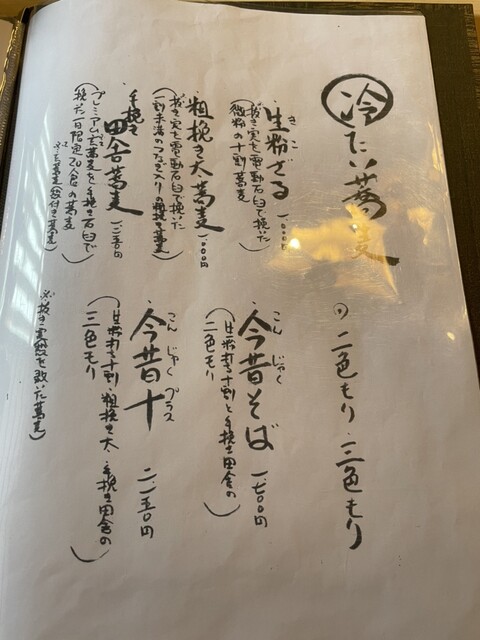 冷たい蕎麦
・生粉ざる 一、〇〇〇円
きこ
(抜き実を電動石臼で挽いた
微粉の十割蕎麦)
・粗挽き太蕎麦 一、〇〇〇円
(抜き実を電動石臼で挽いた
一割未満のつなぎ入りの粗挽き蕎麦)
・手挽き田舎蕎麦 一、二五〇円
(プレミアム玄蕎麦を手挽き石臼で
挽いた一日限定20食の蕎麦
二色もり・三色もり
・今昔そば 一、七〇〇円
こんじゃく
(生粉打ち十割と手挽き田舎の
二色もり)
・今昔十 二、二五〇円
こんじゃくプラス
(生粉打ち十割・粗挽き太・手挽き田舎の
三色もり)
※抜き実 殻を取いた蕎麦)